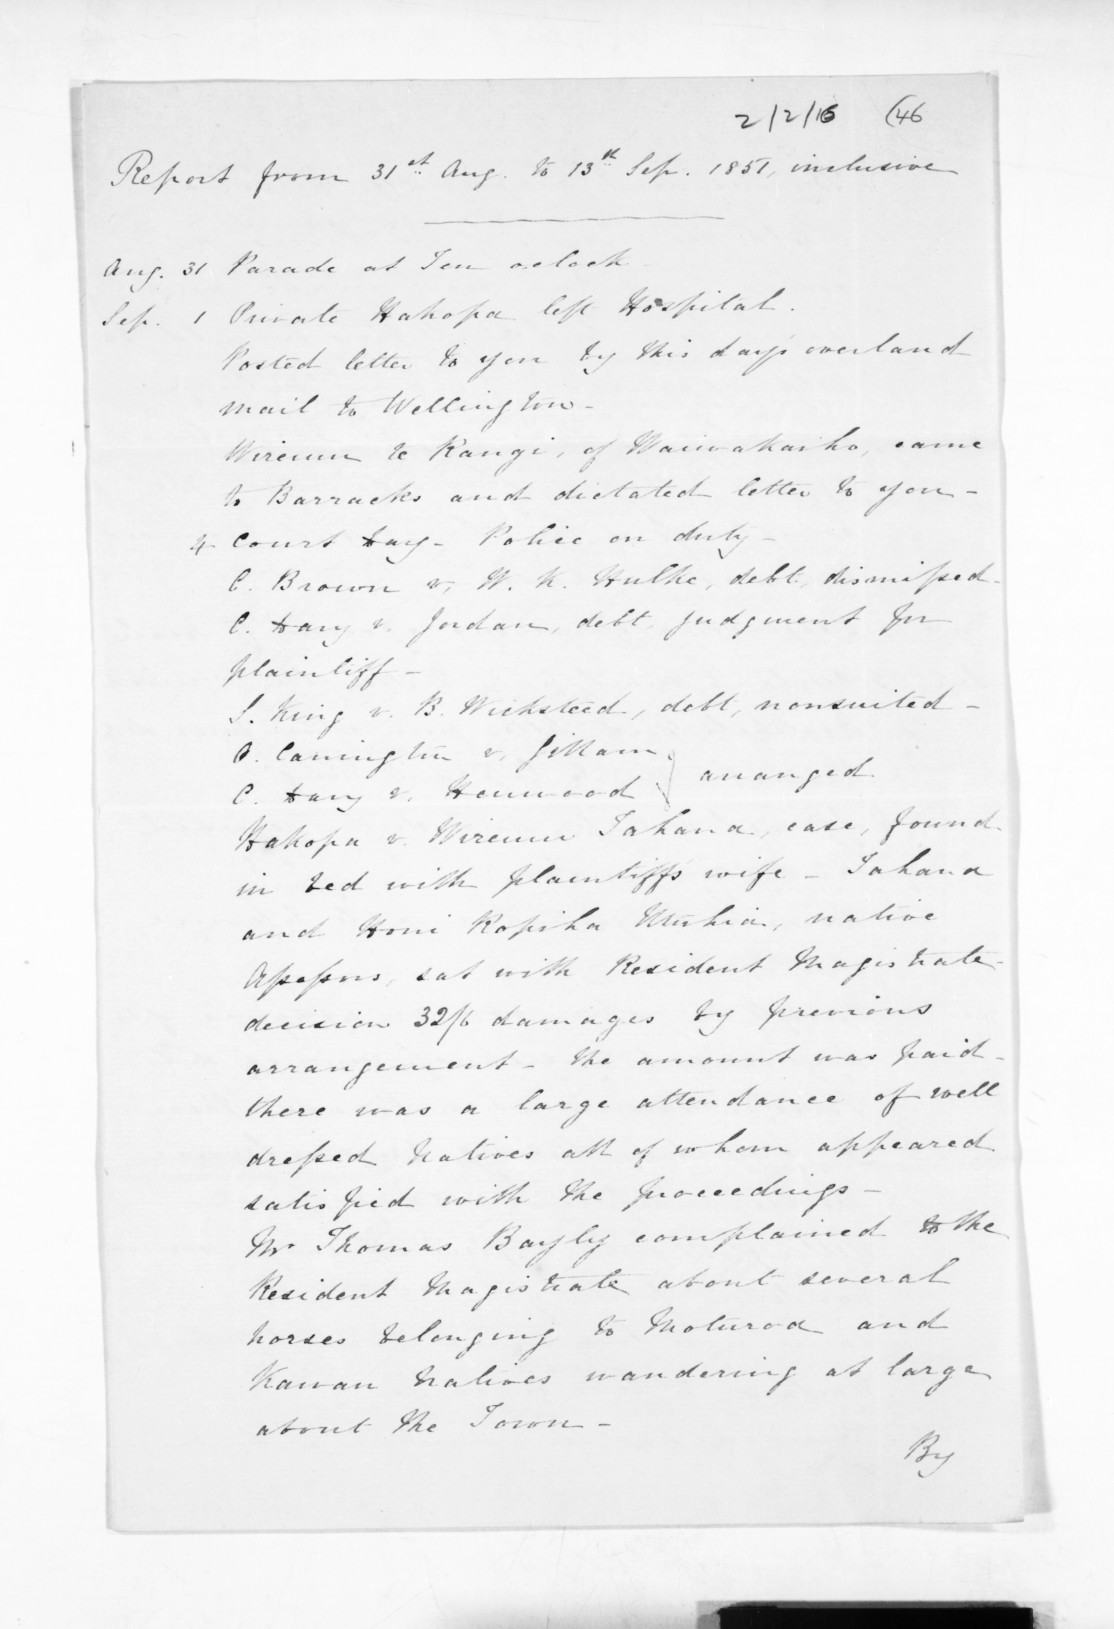 2/2/16 (46
Report from 31st Aug. to 13th Sep. 1851, inclusive
Aug. 31 Parade at Ten oclock
Sep. 1 Private Hakopa left Hospital.
Posted letter to you by this day's overland
mail to Wellington -
Wiremu te Rangi, of Waiwakaiho, came
to Barracks and dictated letter to you -
4 Court Day - Police on duty -
C. Brown v. W. K. Hulke, debt, dismissed -
C. Davy v. Jordan, debt, judgment for
plaintiff -
S. King v. B. Wicksteed, debt, nonsuited -
C. Davy v. Henwood } arranged
Hakopa v. Wiremu Tahana, case, found
in bed with plaintiff's wife - Tahana
and Honi Ropiha, native
Assessors, sat with Resident Magistrate -
decision 32/6 damages by previous
arrangement - the amount was paid -
there was a large attendance of well
dressed Natives all of whom appeared
satisfied with the proceedings -
Mr Thomas Bayly complained to the
Resident Magistrate about several
horses belonging to Moturoa and
Kawau Natives wandering at large
about the Town -
By